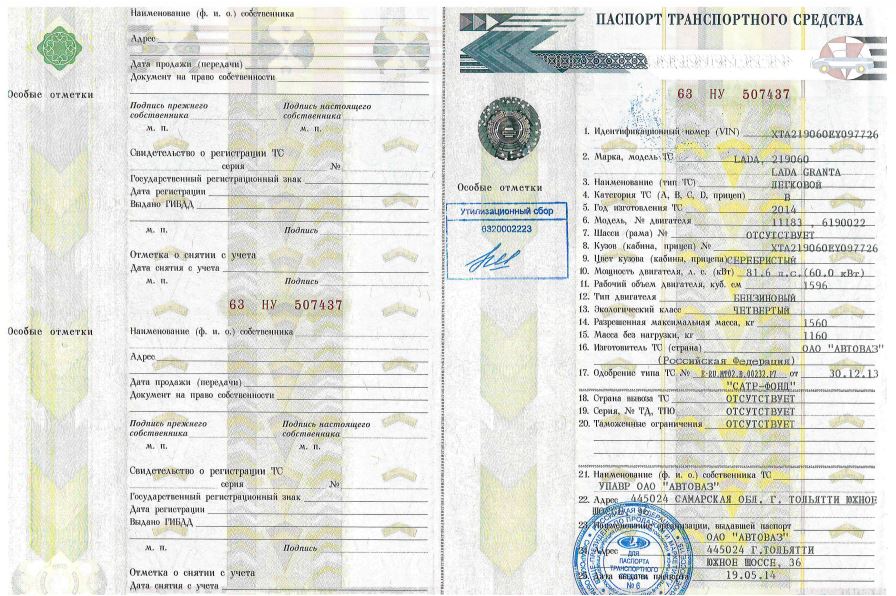 Наименование (ф. и. о.) собственника
Адрес
Дата продажи (передачи)
Документ на право собственности
Особые отметки
Подпись прежнего собственника
Подпись настоящего собственника
м. п.
м. п.
Свидетельство о регистрации ТС
серия №
Государственный регистрационный знак
Дата регистрации
Выдано ГИБДД
м. п. Подпись
Отметка о снятии с учета
Дата снятия с учета
м. п. Подпись
63 НУ 507437
Особые отметки
Наименование (ф. и. о.) собственника
Адрес
Дата продажи (передачи)
Документ на право собственности
Подпись прежнего собственника
Подпись настоящего собственника
м. п.
м. п.
Свидетельство о регистрации ТС
серия №
Государственный регистрационный знак
Дата регистрации
Выдано ГИБДД
м. п. Подпись
Отметка о снятии с учета
Дата снятия с учета
ПАСПОРТ ТРАНСПОРТНОГО СРЕДСТВА
63 НУ 507437
Особые отметки
Утилизационный сбор
6320002223
1. Идентификационный номер (VIN) XTA219060EY097726
2. Марка, модель ТС LADA, 219060
LADA GRANTA
3. Наименование (тип ТС) ЛЕГКОВОЙ
4. Категория ТС (A, B, C, D, прицеп) B
5. Год изготовления ТС 2014
6. Модель, № двигателя 11183 , 6190022
7. Шасси (рама) № ОТСУТСТВУЕТ
8. Кузов (кабина, прицеп) № XTA219060EY097726
9. Цвет кузова (кабины, прицепа) СЕРЕБРИСТЫЙ
10. Мощность двигателя, л. с. (кВт) 81.6 л.с.(60.0 кВт)
11. Рабочий объем двигателя, куб. см 1596
12. Тип двигателя БЕНЗИНОВЫЙ
13. Экологический класс ЧЕТВЕРТЫЙ
14. Разрешенная максимальная масса, кг 1560
15. Масса без нагрузки, кг 1160
16. Изготовитель ТС (страна) ОАО "АВТОВАЗ"
(Российская Федерация)
17. Одобрение типа ТС № E-RU.MT02.B.00232.P7 от 30.12.13
"САТР-ФОНД"
18. Страна вывоза ТС ОТСУТСТВУЕТ
19. Серия, № ТД, ТПО ОТСУТСТВУЕТ
20. Таможенные ограничения ОТСУТСТВУЕТ
21. Наименование (ф. и. о.) собственника ТС
УПАВР ОАО "АВТОВАЗ"
22. Адрес 445024 САМАРСКАЯ ОБЛ, Г. ТОЛЬЯТТИ ЮЖНОЕ
23. Наименование организации, выдавшей паспорт
ОАО "АВТОВАЗ"
24. Адрес 445024 Г.ТОЛЬЯТТИ
ЮЖНОЕ ШОССЕ, 36
25. Дата выдачи паспорта 19.05.14
ДЛЯ
ПАСПОРТА
ТРАНСПОРТНОГО
№ 6